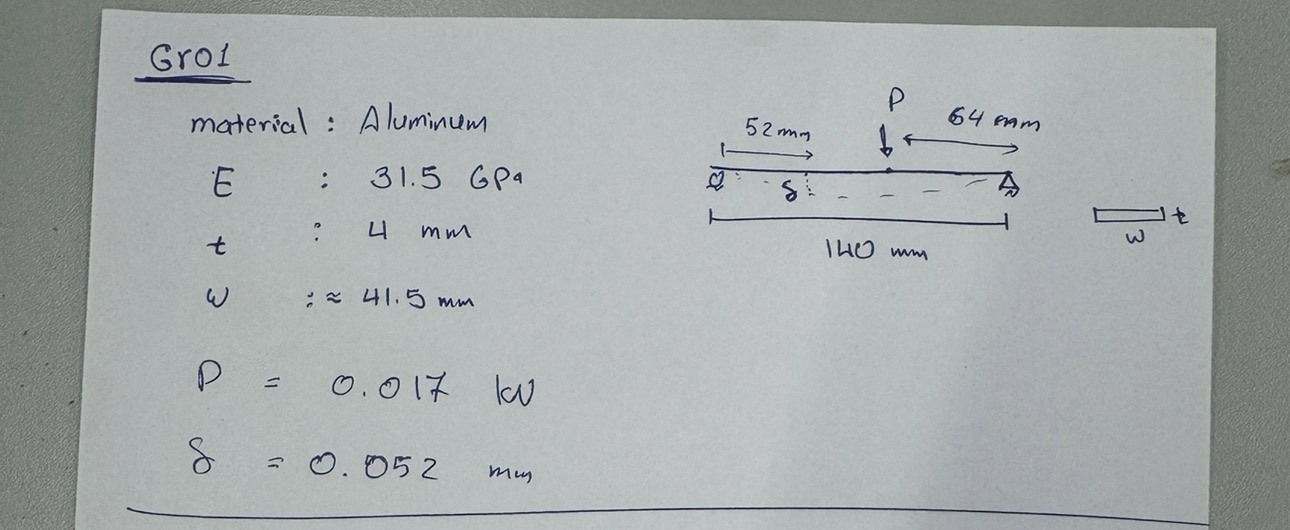 Gr01
material : Aluminum
E : 31.5 GPa
t : 4 mm
w : ≈ 41.5 mm
P = 0.017 kN
δ = 0.052 mm
P
52 mm
64 mm
δ
140 mm
t
w